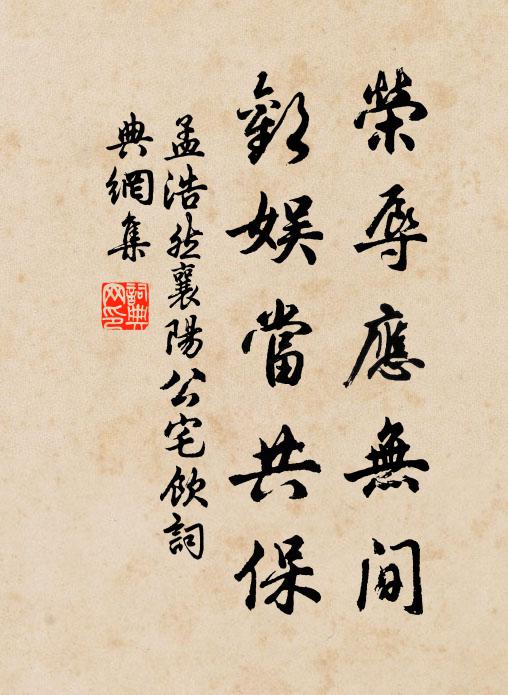 榮辱應無間
歡娱當共保
孟浩然襄陽公宅飲詞
典網集
詞典
网印